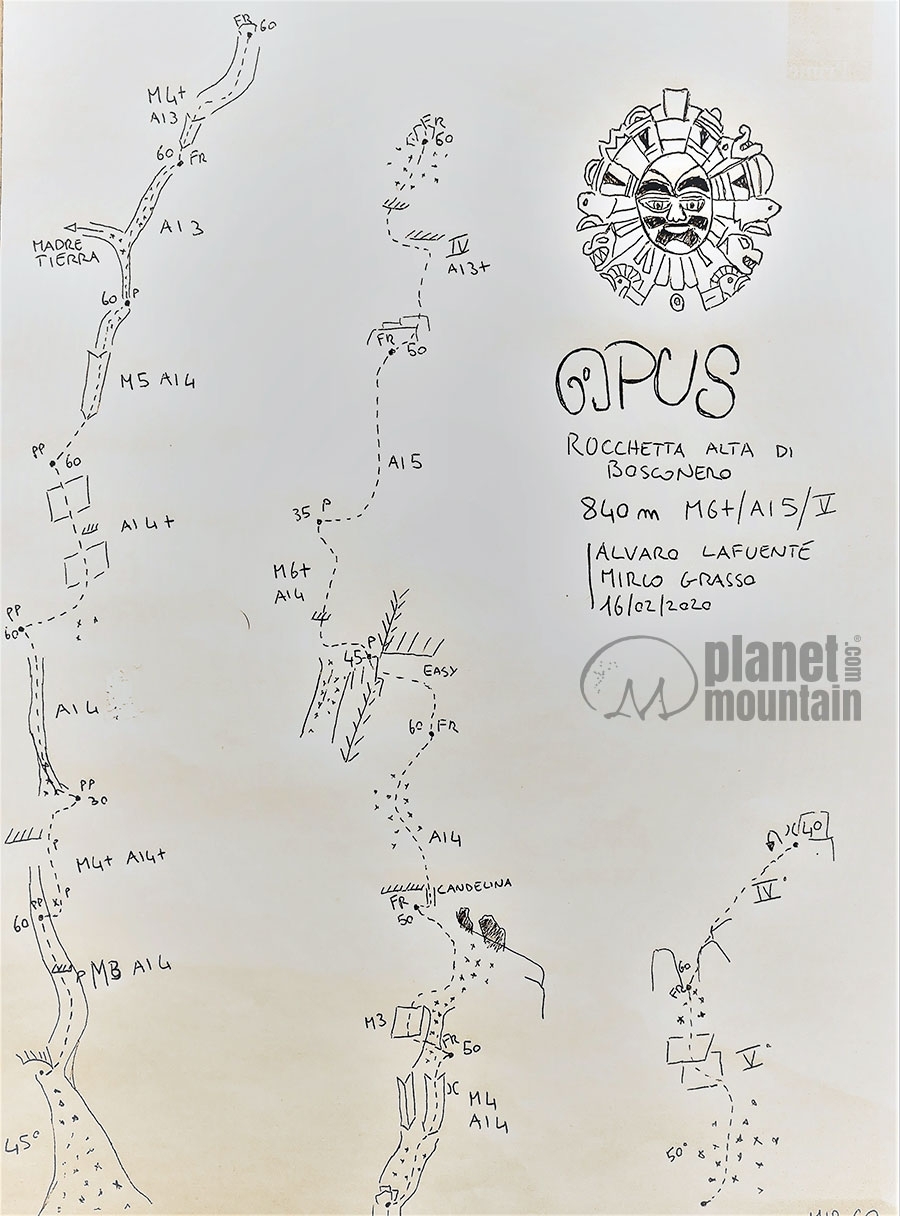 FR
60
M4+
AI3
60 FR
AI3
MADRE
TIERRA
60 P
M5 AI4
PP
60
AI4+
PP
60
AI4
PP
30
P
M4+ AI4+
P
PP
60
P M3 AI4
45°
FR
60
IV
AI3+
FR 50
AI5
35 P
M6+
AI4
P
45
EASY
60 FR
AI4
CANDELINA
FR
50
M3
FR
50
M4
AI4
OPUS
ROCCHETTA ALTA DI
BOSCONERO
840m M6+/AI5/V
ALVARO LAFUENTE
MIRCO GRASSO
16/02/2020
planet
mountain
.com
®
40
IV°
60
FR
V°
50°